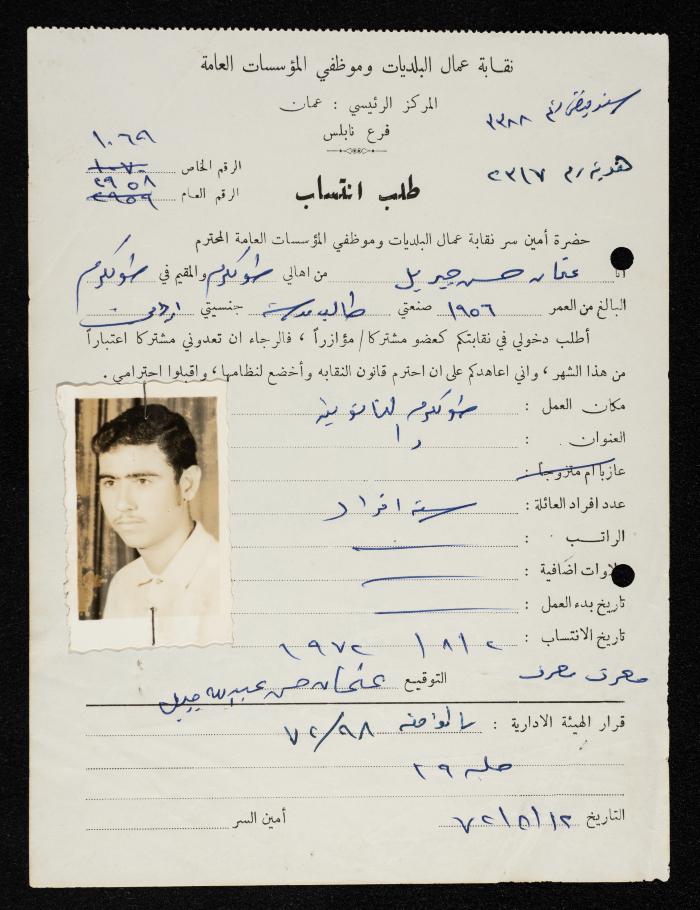 نقابة عمال البلديات وموظفي المؤسسات العامة
المركز الرئيسي : عمان
سند قبض رقم ٣٣٨٨
فرع نابلس
١٠٦٩
الرقم الخاص ١٠٧٠
هوية رقم ٢٣١٧
٢٩٥٨
الرقم العام ٢٩٥٩
طلب انتساب
حضرة أمين سر نقابة عمال البلديات وموظفي المؤسسات العامة المحترم
انا عثمان حسن جبريل من اهالي طولكرم والمقيم في طولكرم
البالغ من العمر ١٩٥٦ صنعتي طالب مدرسة جنسيتي اردني
أطلب دخولي في نقابتكم كعضو مشتركا / مؤازراً ، فالرجاء ان تعدوني مشتركا اعتباراً
من هذا الشهر ، واني اعاهدكم على ان احترم قانون النقابه وأخضع لنظامها ، واقبلوا احترامي .
مكان العمل : طولكرم الثانوية
العنوان :
عازبا ام متزوجا :
عدد افراد العائلة : ستة افراد
الراتب :
علاوات اضافية :
تاريخ بدء العمل :
تاريخ الانتساب : ٢ / ٨ / ١٩٧٢
التوقيع عثمان حسن عبدالله جبريل
قرار الهيئة الادارية : بالموافقه ٧٢/٩٨
جلسه ٢٩
التاريخ ٧٢/٨/١٢ أمين السر